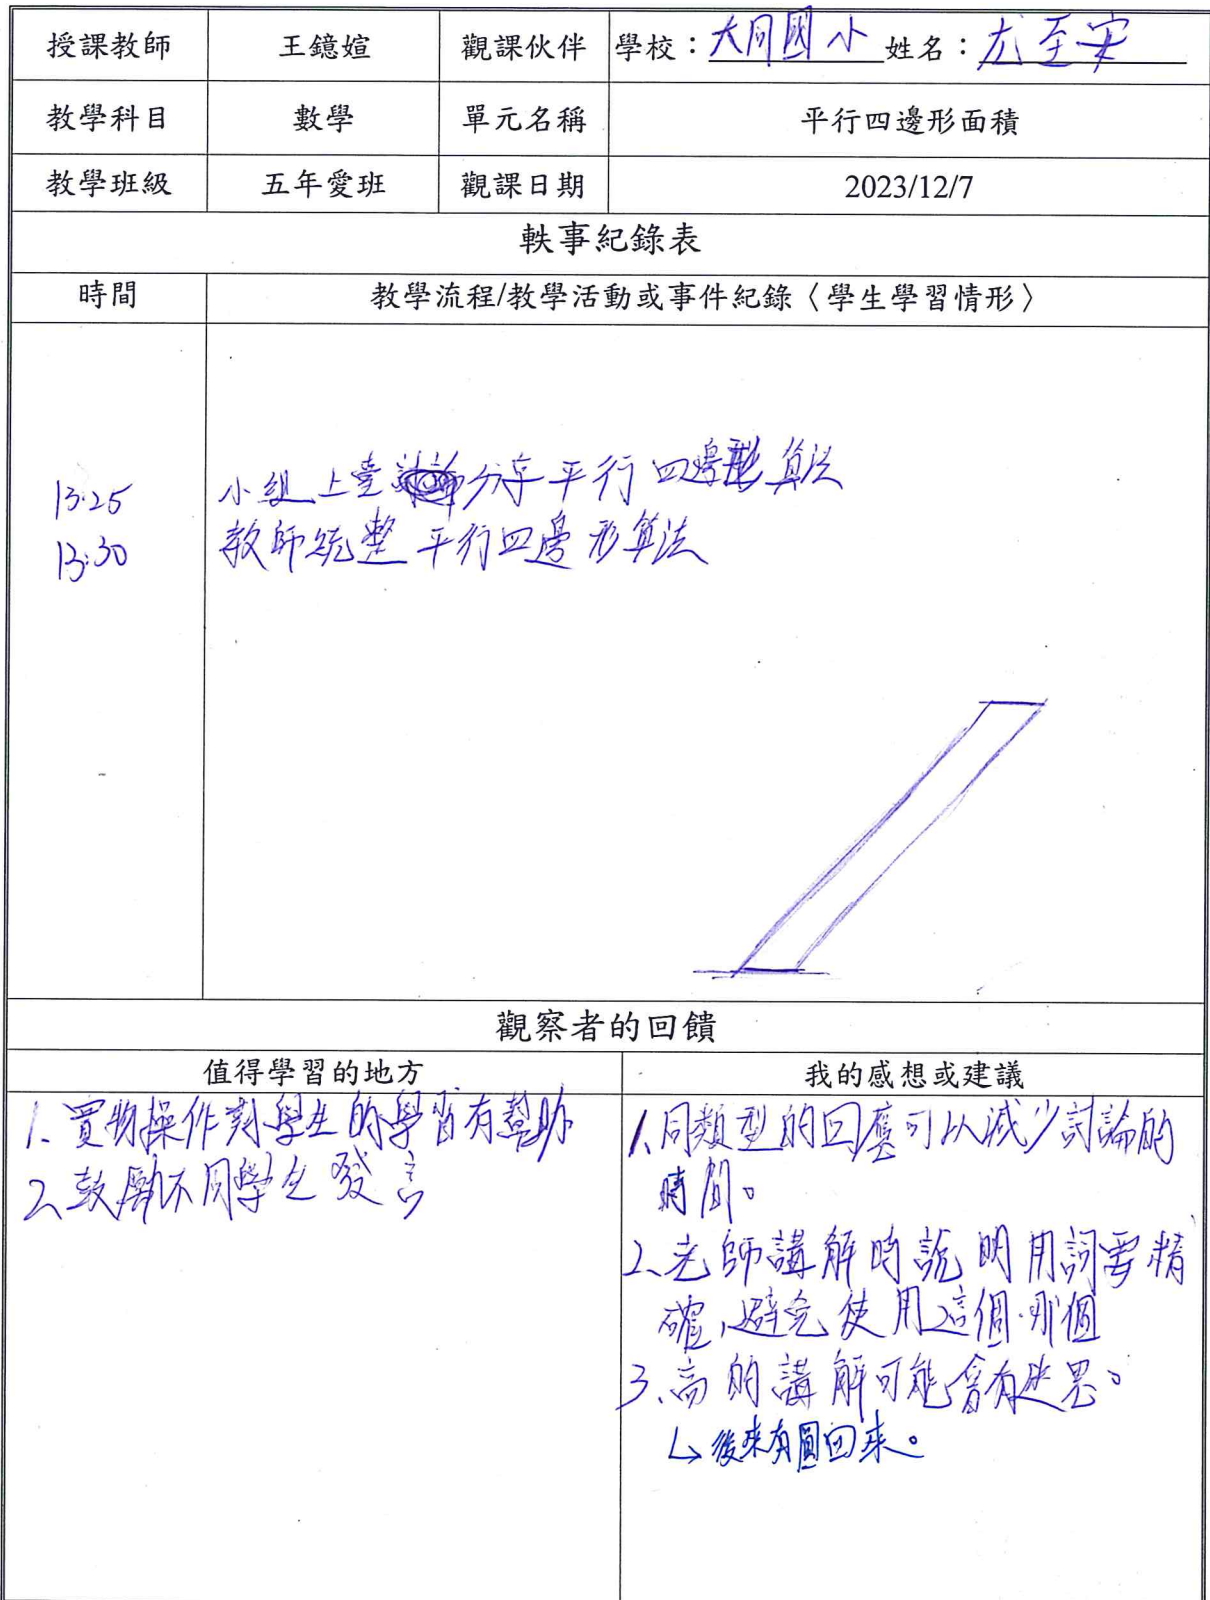 授課教師 王鐿媗 觀課伙伴 學校：大同國小 姓名：尤至安
教學科目 數學 單元名稱 平行四邊形面積
教學班級 五年愛班 觀課日期 2023/12/7
軼事紀錄表
時間 教學流程/教學活動或事件紀錄〈學生學習情形〉
13:25 小組上臺分享平行四邊形算法
13:30 教師統整平行四邊形算法
觀察者的回饋
值得學習的地方 我的感想或建議
1.實物操作對學生的學習有幫助
2.鼓勵不同學生發言
1.同類型的回應可以減少討論的
時間。
2.老師講解時說明用詞要精
確,避免使用這個.那個
3.高的講解可能會有迷思。
↳後來有圓回來。